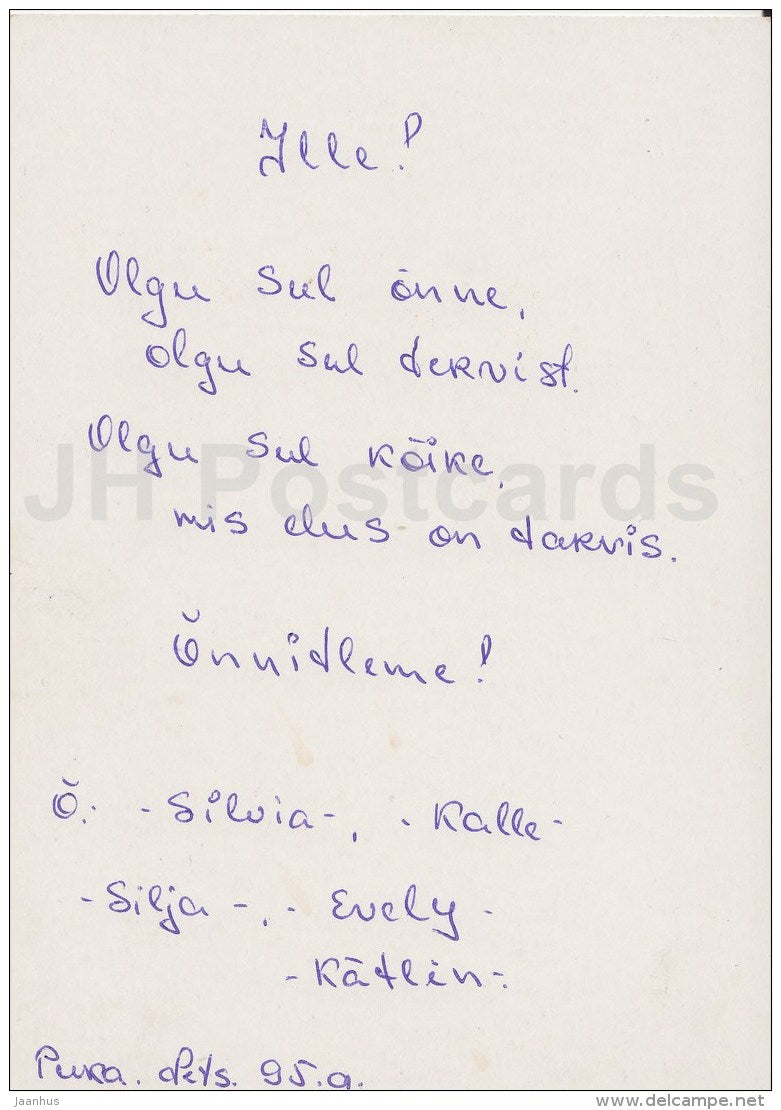 Ille!
Olgu Sul õnne,
olgu Sul tervist.
Olgu Sul kõike,
JH Postcards
mis elus on tarvis.
Õnnitleme!
Õ: -Silvia-, -Kalle-
-Silja-, -Evely-
-Kätlin-
Puka. dets. 95.a.
Jaanhus www.delcampe.net